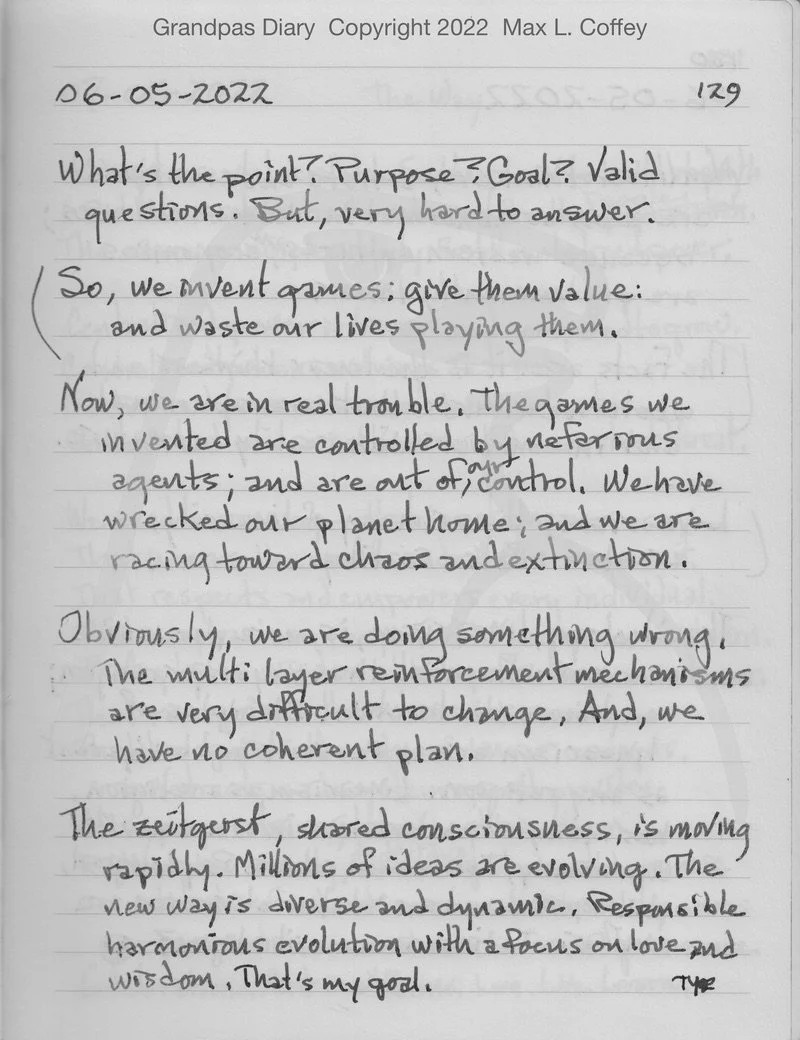 Grandpas Diary Copyright 2022 Max L. Coffey
06-05-2022 129
What's the point? Purpose? Goal? Valid
questions. But, very hard to answer.
So, we invent games; give them value:
and waste our lives playing them.
Now, we are in real trouble. The games we
invented are controlled by nefarious
agents; and are out of, our control. We have
wrecked our planet home; and we are
racing toward chaos and extinction.
Obviously, we are doing something wrong.
The multi layer reinforcement mechanisms
are very difficult to change, And, we
have no coherent plan.
The zeitgeist, shared consciousness, is moving
rapidly. Millions of ideas are evolving. The
new way is diverse and dynamic. Responsible
harmonious evolution with a focus on love and
wisdom. That's my goal.